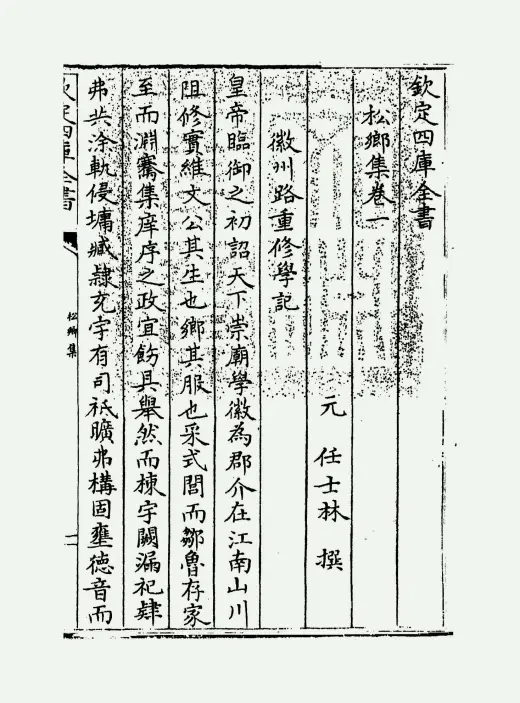 欽定四庫全書
松鄉集卷一
元 任士林 撰
徽州路重修學記
皇帝臨御之初詔天下崇廟學徽為郡介在江南山川
阻修實維文公其生也鄉其服也采式閭而鄒魯存家
至而淵騫集庠序之政宜飭具舉然而棟宇闕漏祀肄
弗共涂軌侵墉臧隸充宇有司祇曠弗構固壅德音而
欽定四庫全書
松鄉集
一